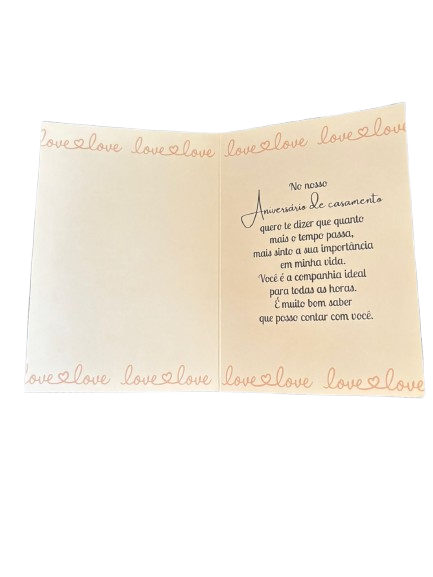 love♡love love♡love love♡love love♡love
No nosso
Aniversário de casamento
quero te dizer que quanto
mais o tempo passa,
mais sinto a sua importância
em minha vida.
Você é a companhia ideal
para todas as horas.
É muito bom saber
que posso contar com você.
ove♡love love♡love love♡love love♡love